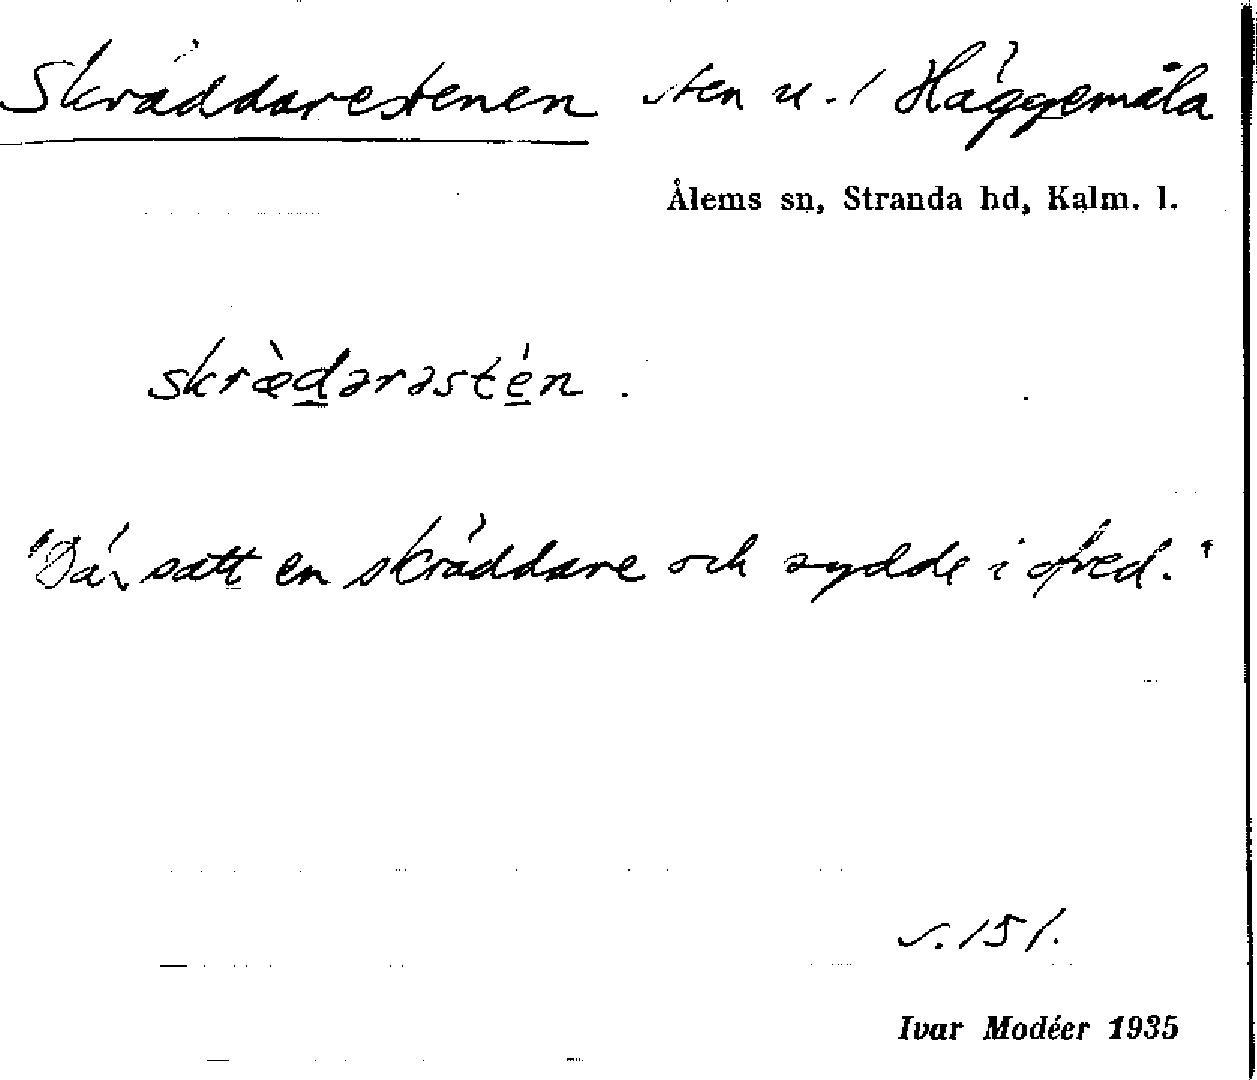 Skräddarestenen sten u. / Häggemåla
Ålems sn, Stranda hd, Kalm. l.
skrædarəstén.
"Där satt en skräddare och sydde i ofred."
s. 151.
Ivar Modéer 1935